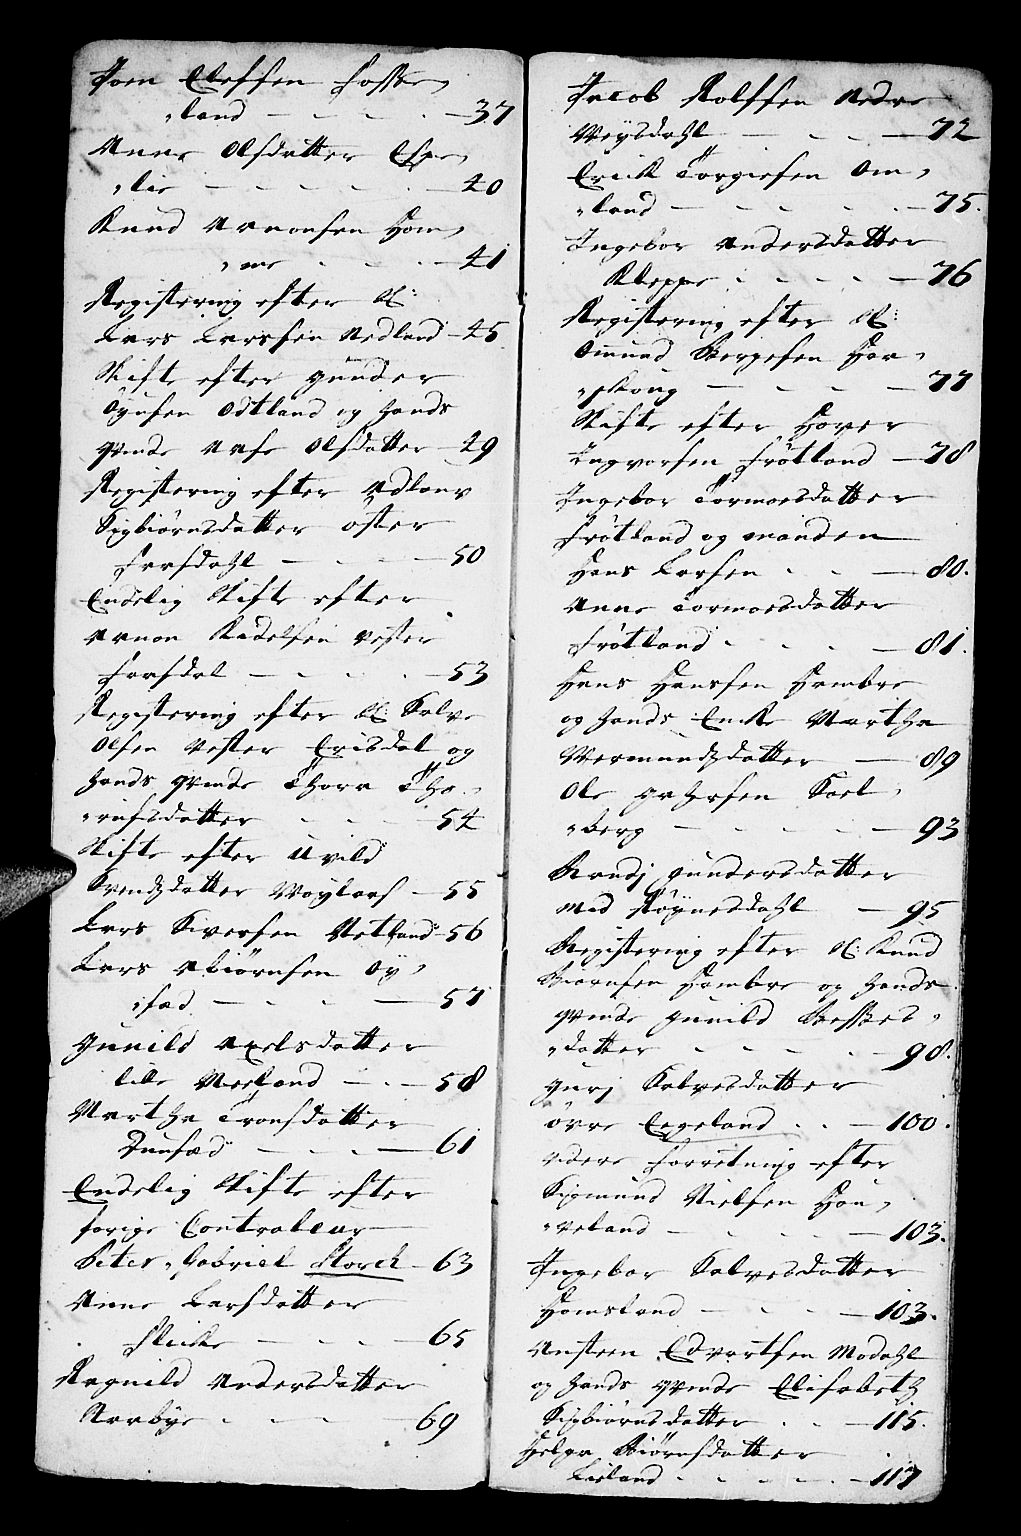 Joen Eleffsen Fosse,
"land - - - - 37
Anna Olsdatter Espe,
"lie - - - - 40
Knud Aanonsen Hom,
"me - - - - 41
Registering efter Sl:
Lars Larssen Nedland - 45
Skifte efter Gunder
Øysen Odtland og hands
qvinde Aase Olsdatter - 49
Registering efter Adlouv
Sigbiørnsdatter øster
Farsdahl - - - - 50
Endelig Skifte efter
Aanon Kädelsen vester
Farsdal - - - - 53
Registering efter Sl: Salve
Olsen Vester Erisdal og
hands qvinde Thora Tho,
"rufsdatter - - - 54
Skifte efter Uvild
Svendsdatter Møylaas - 55
Lars Siversen Netland - 56
Lars Abiørnsen Øy,
"sæd - - - - 57
Gunild Axelsdatter
lille Neeland - - 58
Martha Tronsdatter
Dunsæd - - - - 61
Endelig Skifte efter
forige Controleur
Peter Gabriel Storch - 63
Anne Larsdatter
- - - - 65
Ragnild Andersdatter
Aarbye - - - - 69
Jacob Rolffsen Nedre
Møysdahl - - - - 72
Erick Torgiesen Om,
"land - - - - 75.
Ingebor Andersdatter
Kleppe - - - - 76
Registering efter Sl:
Omund Børgesen Hau,
"skoug - - - - 77
Skifte efter Hover
Ingvorsen Frøtland - 78
Ingebor Tormoesdatter
Frøtland og manden
Hans Larsen - - - 80.
Anne Tormoesdatter
Frøtland - - - - 81.
Hans Hanssen Hambre
og hands Encke Martha
Vermundsdatter - 89
Ole Sael,
"berg - - - - 93
Randj Gundersdatter
Med Røynesdahl - 95
Registering efter Sl: Knud
Biørnsen Hambre og hands
qvinde Gunild
"datter - - - - 98.
Gurj Salvesdatter
øvre Eegeland - - 100.
videre Forretning efter
Sigmund Nielsen Hou,
"veland - - - - 103.
Ingebor Salvesdatter
Homsland - - - - 103.
Ansteen Edvartsen Modahl
og hands qvinde Elisabeth
Sigbiørnsdatter - - 115.
Helga Biørnsdatter
Lieland - - - - 117